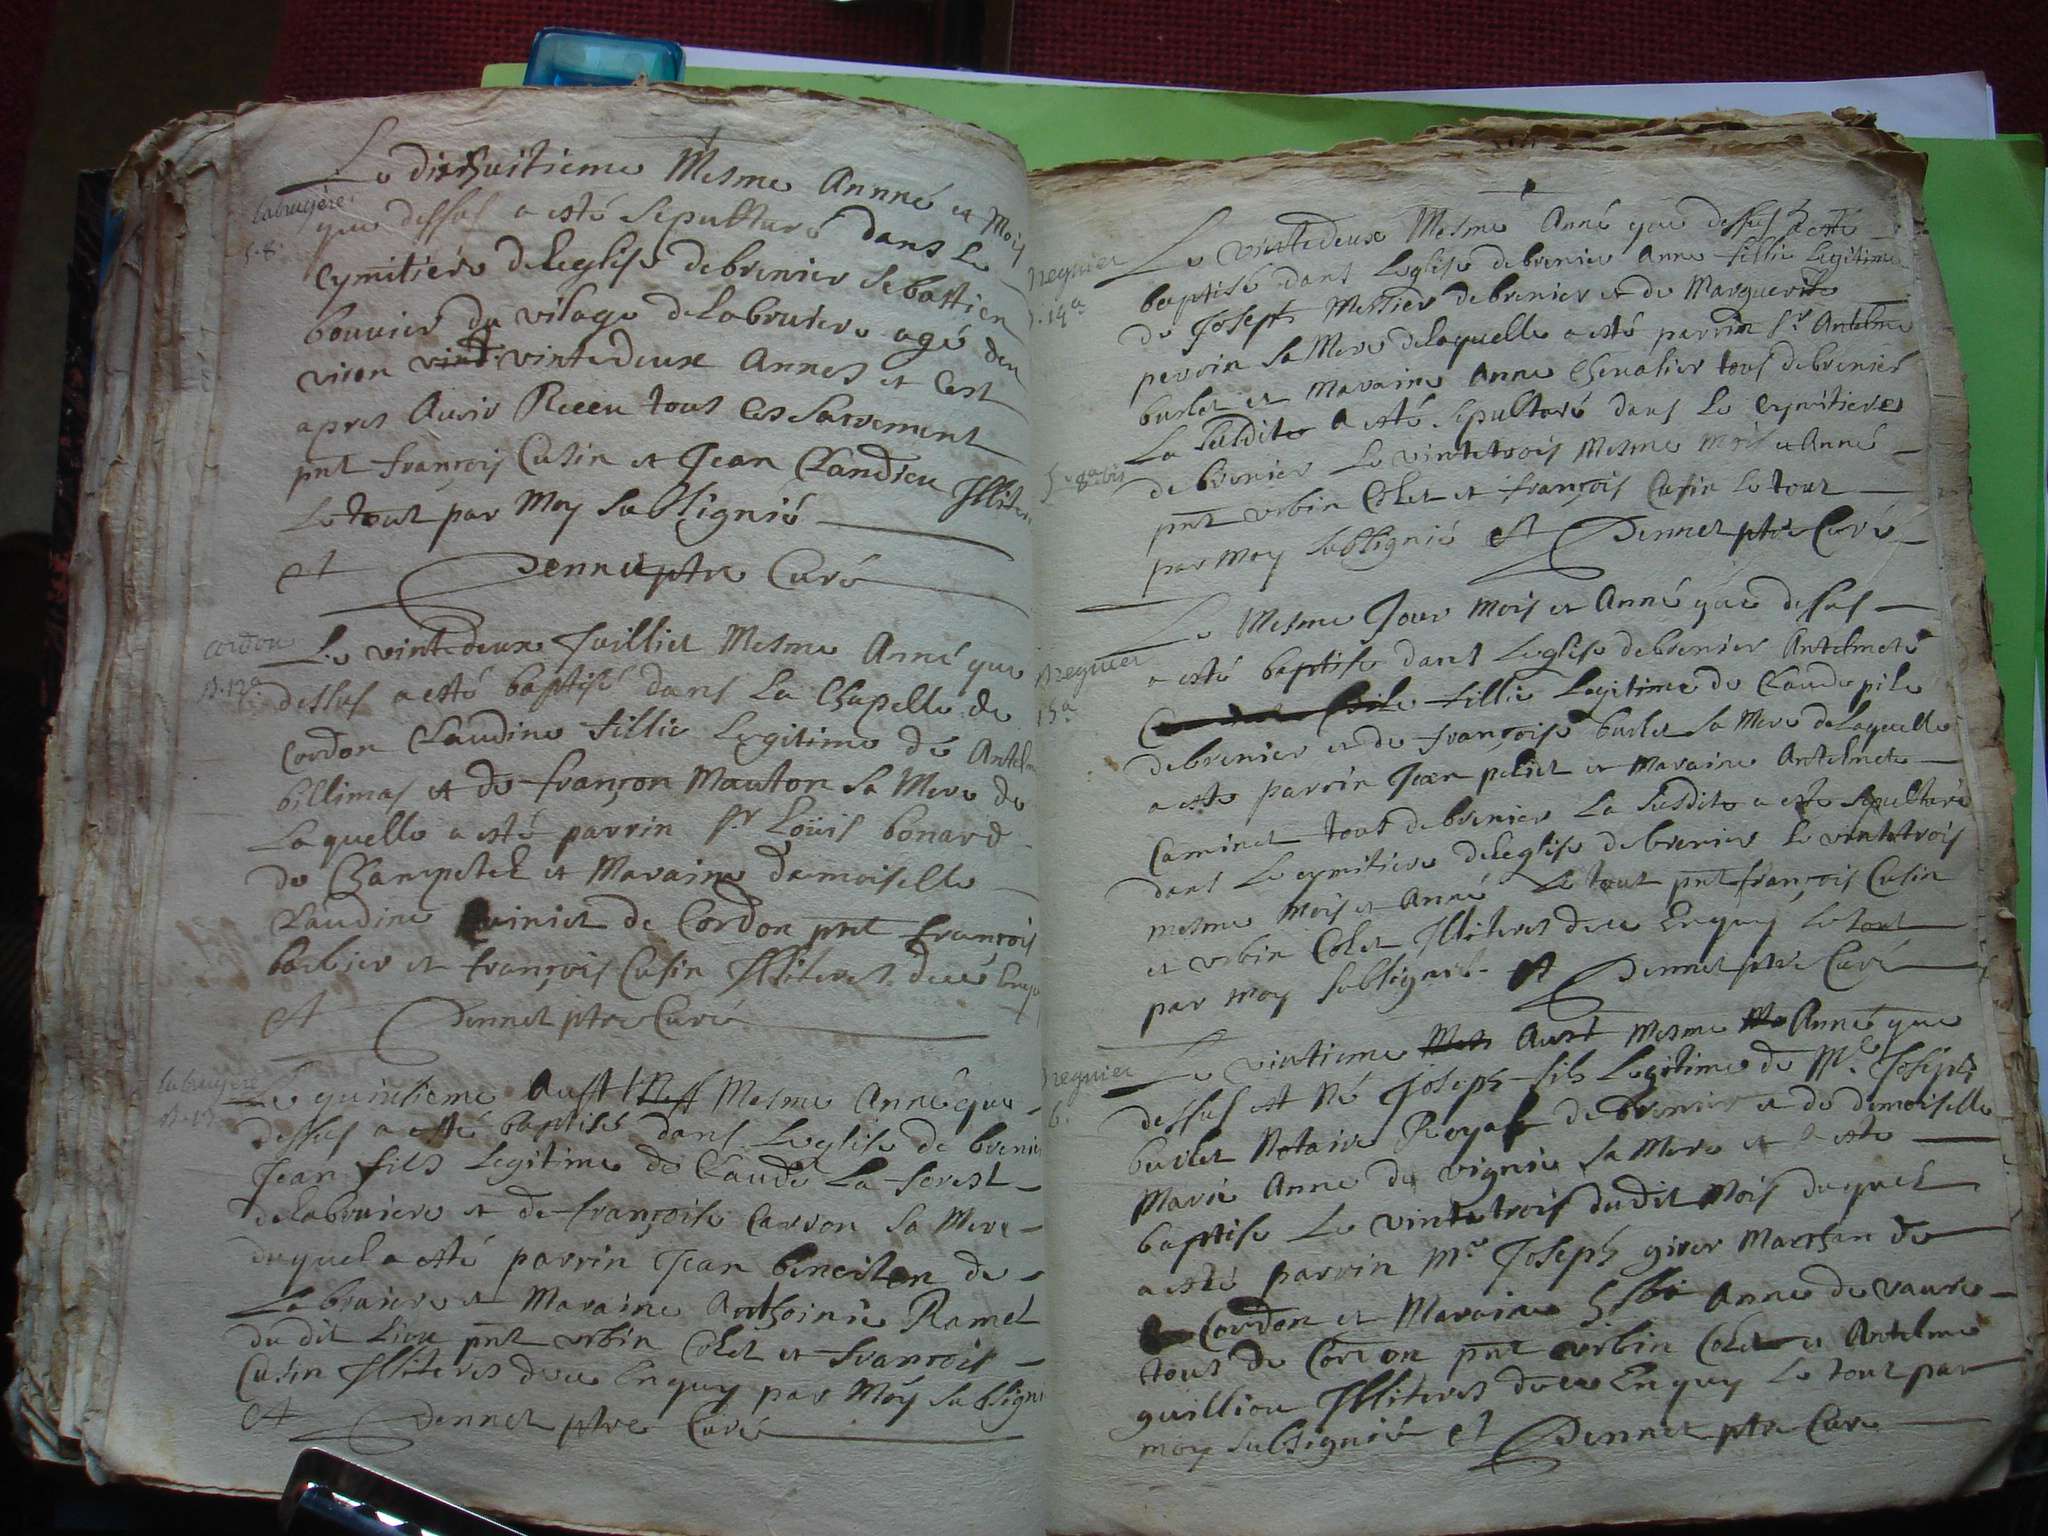 Le dixhuitieme Mesme Annné et Mois
labruyere
que dessus a esté sepulturé dans Le
S. 8.
Cymitiere deleglise debrenier sebastien
bouvier du vilage delabruiere agé den
viron vint vintedeux Annes et Cest
apres Avoir Receu tous Ces Sacrement
pnt françois Cusin et Jean Claudieu Illiter
Le tout par Moy Sabsignié
et Dennet ptre Curé
cordon
Le vintedeux Juilliet Mesme Anné que
B. 12a
dessus a esté baptisé dans La Chapelle de
Cordon Claudine fillie Legitime de Antelm
billimas et de françon Mauton Sa Mere de
Laquelle a esté parrin Sr Loüis bonard
de Champetel et Maraine damoiselle
Claudine de Cordon pnt françois
barbier et françois Cusin Illiteres deue Enquis
et Dennet ptre Curé
labruyere
Le quintieme Aust Mesme Anné que
B. 13
dessus a esté baptisé dans Leglise de brenie
Jean fils Legitime de Claude La forest
delabruiere et de françoise Carron Sa Mere
duquel a esté parrin Jean benoiton de
Labruiere et Maraine Anthoinie Ramel
du dit Lieu pnt urbin Colet et françois
Cusin Illiteres deue Enquis par Moy Sabsigni
et Dennet ptre Curé
Le vintedeux Mesme Anné que dessus a esté
regnier
baptisé dans Leglise debrenier Anne fillie Legitime
B. 14a
de Joseph Messier debrenier et de Marguerite
perrin Sa Mere delaquelle a esté parrin Sr Antelme
burlet et Maraine Anne Chevalier tous debrenier
La Susdite a esté Sepulturé dans Le Cymitiere
S. 8a bis
de brenier Le vintetrois Mesme Mois et Anné
pnt urbin Colet et françois Cusin Le tout
par Moy Sabsignié et Dennet ptre Curé
Le Mesme Jour Mois et Anné que dessus
regnier
a esté baptisé dans Leglise debrenier Antelmete
15a
fillie Legitime de Claude pile
debrenier et de françoise burlet Sa Mere delaquelle
a esté parrin Jean peliet et Maraine Antelmete
Caminet tous debrenier La Susdite a esté Sepulturé
dans Le Cymitiere deleglise debrenier Le vintetrois
mesme Mois et Anné Le tout pnt françois Cusin
et urbin Colet Illiteres deue Enquis Le tout
par Moy Sabsignié et Dennet ptre Curé
Le vintieme Aust Mesme Anné que
regnier
dessus est né Joseph fils Legitime de Me Joseph
6.
burlet Notaire Royal de brenier et de demoiselle
Marie Anne du vignie Sa Mere et a esté
baptisé Le vintetrois dudit Mois duquel
a esté parrin Me Joseph giver Marchan de
Cordon et Maraine Anne de vaure
tous de Cordon pnt urbin Colet et Antelme
guilliou Illiteres deue Enquis Le tout par
moy Sabsignié et Dennet ptre Curé